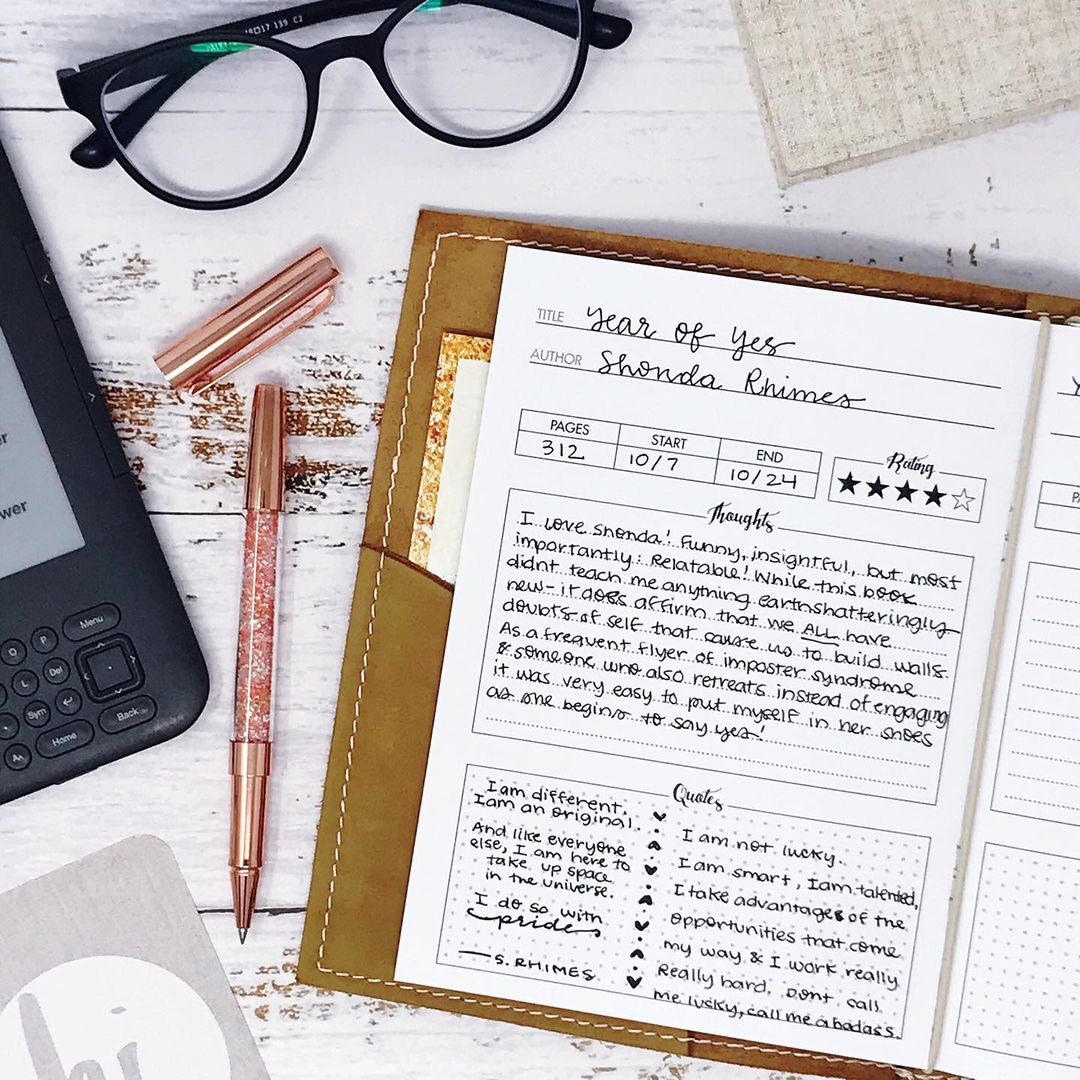 18□17 139 C2
TITLE Year of Yes
AUTHOR Shonda Rhimes
PAGES START END
312 10/7 10/24
Rating
★★★★☆
Thoughts
I love Shonda! Funny, insightful, but most
importantly: Relatable! While this book
didnt teach me anything earthshatteringly
new- it does affirm that we ALL have
doubts of self that cause us to build walls.
As a frequent flyer of imposter syndrome
& someone who also retreats instead of engaging
it was very easy to put myself in her shoes
as she begins to say yes!
Quotes
I am different.
I am an original.
And like everyone
else, I am here to
take up space
in the universe.
I do so with
pride
— S. RHIMES
I am not lucky.
I am smart, I am talented,
I take advantages of the
opportunities that come
my way & I work really
Really hard. Dont call
me lucky, call me a badass.
er
wer
Menu
P
Q
L
Del
Sym
Aa
Home
Back
hi
Y